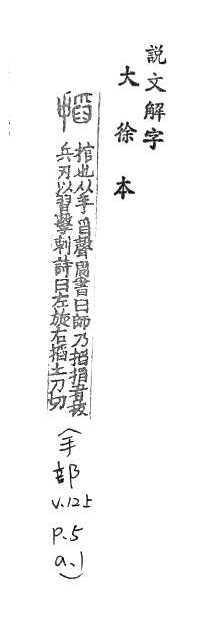 説文解字
大徐本
搯
捾也从手舀聲周書曰師乃搯搯者拔
兵刃以習擊刺詩曰左旋右搯土刀切
(手部 v.12上 p.5 a.1)